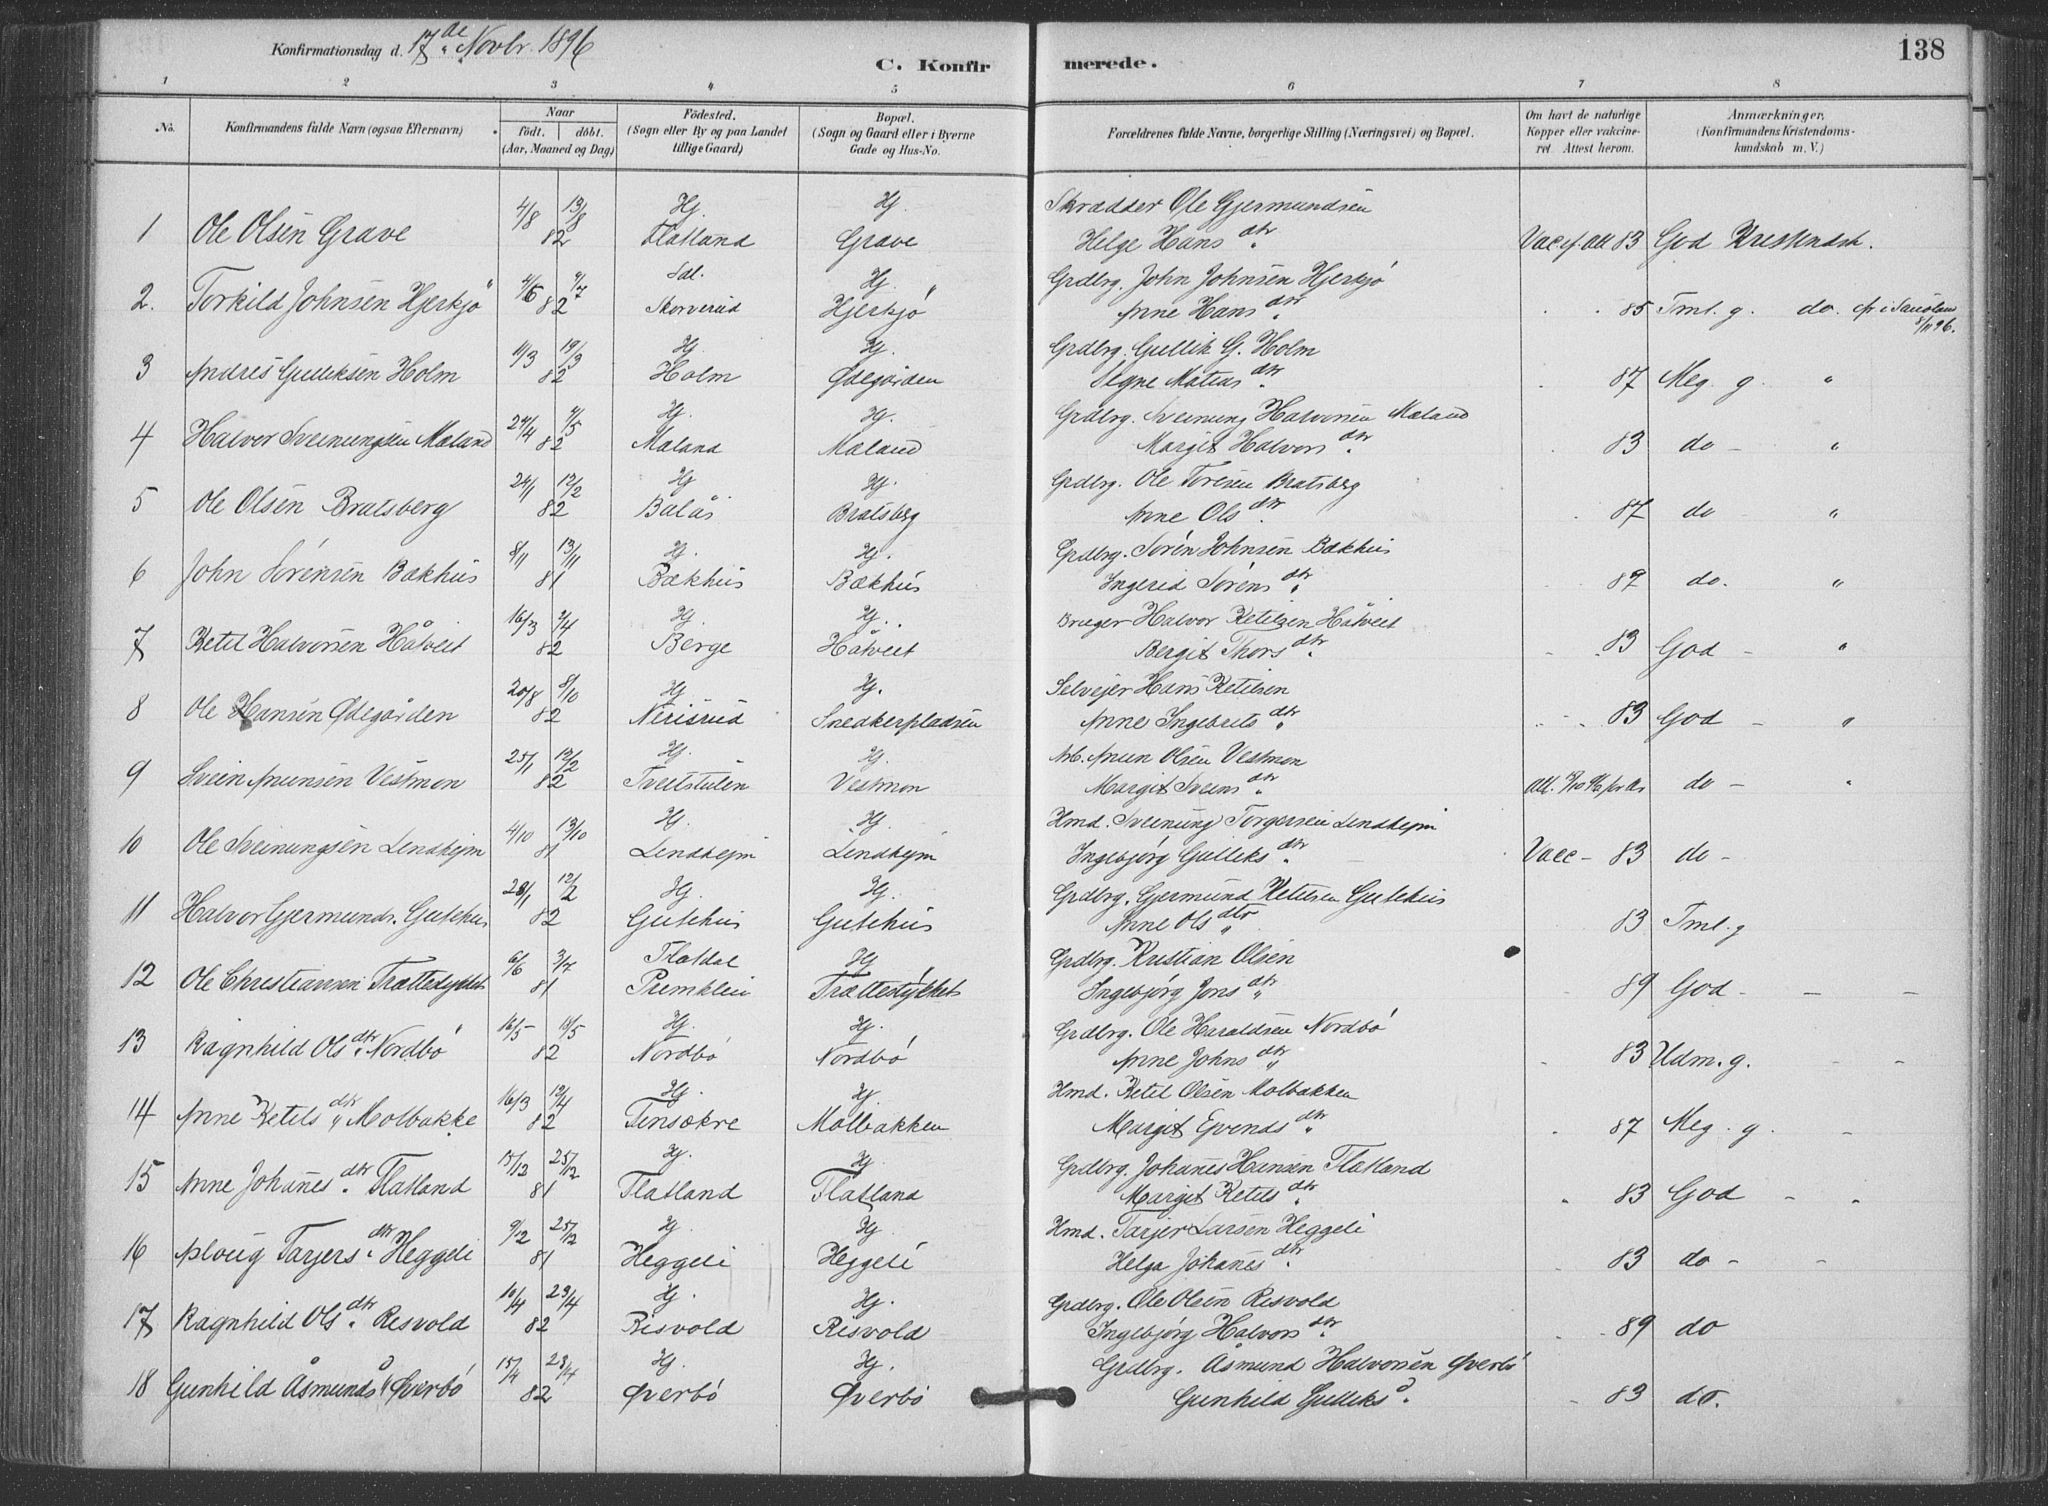 Konfirmationsdag d. 17de Novbr. 1896
C. Konfirmerede.
138
1 2 3 4 5 6 7 8
No.
Konfirmandens fulde Navn (ogsaa Efternavn)
Naar født. døbt. (Aar, Maaned og Dag)
Födested. (Sogn eller By og paa Landet tillige Gaard)
Bopæl. (Sogn og Gaard eller i Byerne Gade og Hus-No.
Forældrenes fulde Navne, borgerlige Stilling (Næringsvei) og Bopæl.
Om havt de naturlige Kopper eller vakcineret. Attest herom.
Anmærkninger, (Konfirmandens Kristendomskundskab m. V.)
1 Ole Olsen Grave 4/8 13/8 82 Hj. Flatland Hj. Grave Skrædder Ole Gjermundsen
Helge Hans dtr. Vac. 83 God Kristendsk.
2. Torkild Johnsen Hjerkjö 82 Sdl. Skorverud Hj. Hjerkjö Grdbrg. John Johnsen Hjerkjö
Anne Hans dtr. 85 Tml. g. do. 8/11 96.
3 Anders Gulliksen Holm 11/3 19/3 82 Hj. Holm Hj. Ødegården Grdbrg. Gullik G. Holm
Segne Matias dtr. 87 Meg. g. "
4 Halvor Sveinungsen Mæland 24/4 82 Hj. Mæland Hj. Mæland Grdbrg. Sveinung Halvorsen Mæland
Margit Halvors dtr. 83 do - "
5 Ole Olsen Bratsberg 24/1 12/2 82 Hj Balås Hj. Bratsberg Grdbrg. Ole Toresen Bratsberg
Anne Ols dtr. 87 do - "
6 John Sörensen Bækhus 8/11 13/11 81 Hj. Bækhus Hj. Bækhus Grdbrg. Sörén Johnsen Bækhus
Ingerid Sörens dtr. 89 do. "
7 Ketil Halvorsen Håtveit 16/3 2/4 82 Hj. Berge Hj. Håtveit Bruger Halvor Ketilsen Håtveit
Bergit Thors dtr. 83 God - "
8 Ole Hansen Ødegården 20/8 8/10 82 Hj Nerisrud Hj. Sneakerpladsen Selvejer Hans Ketilsen
Anne Ingebrits dtr " 83 God - "
9 Svein Aunsen Vestmon 25/1 12/2 82 Hj. Tveitstulen Hj. Vestmon Arb. Aun Olsen Vestmon
Margit Sveins dtr " do - "
10 Ole Sveinungsen Lendhejm 4/10 13/10 81 Hj. Lendhejm Hj. Lendhejm Hmd. Sveinung Torgersen Lendhejm
Ingebjørg Gulleks dtr. Vacc - 83 do -
11 Halvor Gjermunds. Gutehus 28/1 12/2 82 Hj. Gutehus Hj. Gutehus Grdbrg. Gjermund Ketilsen Gutehus
Anne Ols dtr " 83 Tml. g
12 Ole Christiansen Trættestykket 6/6 3/7 81 Flatdal Hj Trættestykket Grdbrg. Kristian Olsen
Ingebjørg Jons dtr " 89 God - - -
13 Ragnhild Ols dtr. Nordbö 16/5 18/5 82 Hj. Nordbö Hj. Nordbö Grdbrg. Ole Haraldsen Nordbö
Anne Johns dtr " 83 Udm. g. - -
14 Anne Ketils dtr " Molbakke 16/3 82 Hj. Tinsækre Hj. Molbakken Hmd. Ketil Olsen Molbakken
Margit Evends dtr " 87 Meg. g. -
15 Anne Johanes dtr. Flatland 15/12 25/12 81 Hj. Flatland Hj. Flatland Grdbrg. Johanes Hansen Flatland
Margit Ketils dtr " 83 God - -
16 Aslaug Tarjers dtr. Heggeli 9/12 25/12 81 Hj Heggeli Hj. Heggeli Hmd. Tarjer Larsen Heggeli
Helga Johanes dtr. 83 do - -
17 Ragnhild Ols dtr. Risvold 10/4 23/4 82 Hj. Risvold Hj. Risvold Grdbrg. Ole Olsen Risvold
Ingebjørg Halvors dtr. 89 do
18 Gunhild Åsmunds d " Øverbö 15/4 23/4 82 Hj. Øverbö Hj. Øverbö Grdbrg. Åsmund Halvorsen Øverbö
Gunhild Gulleks d. 83 do.